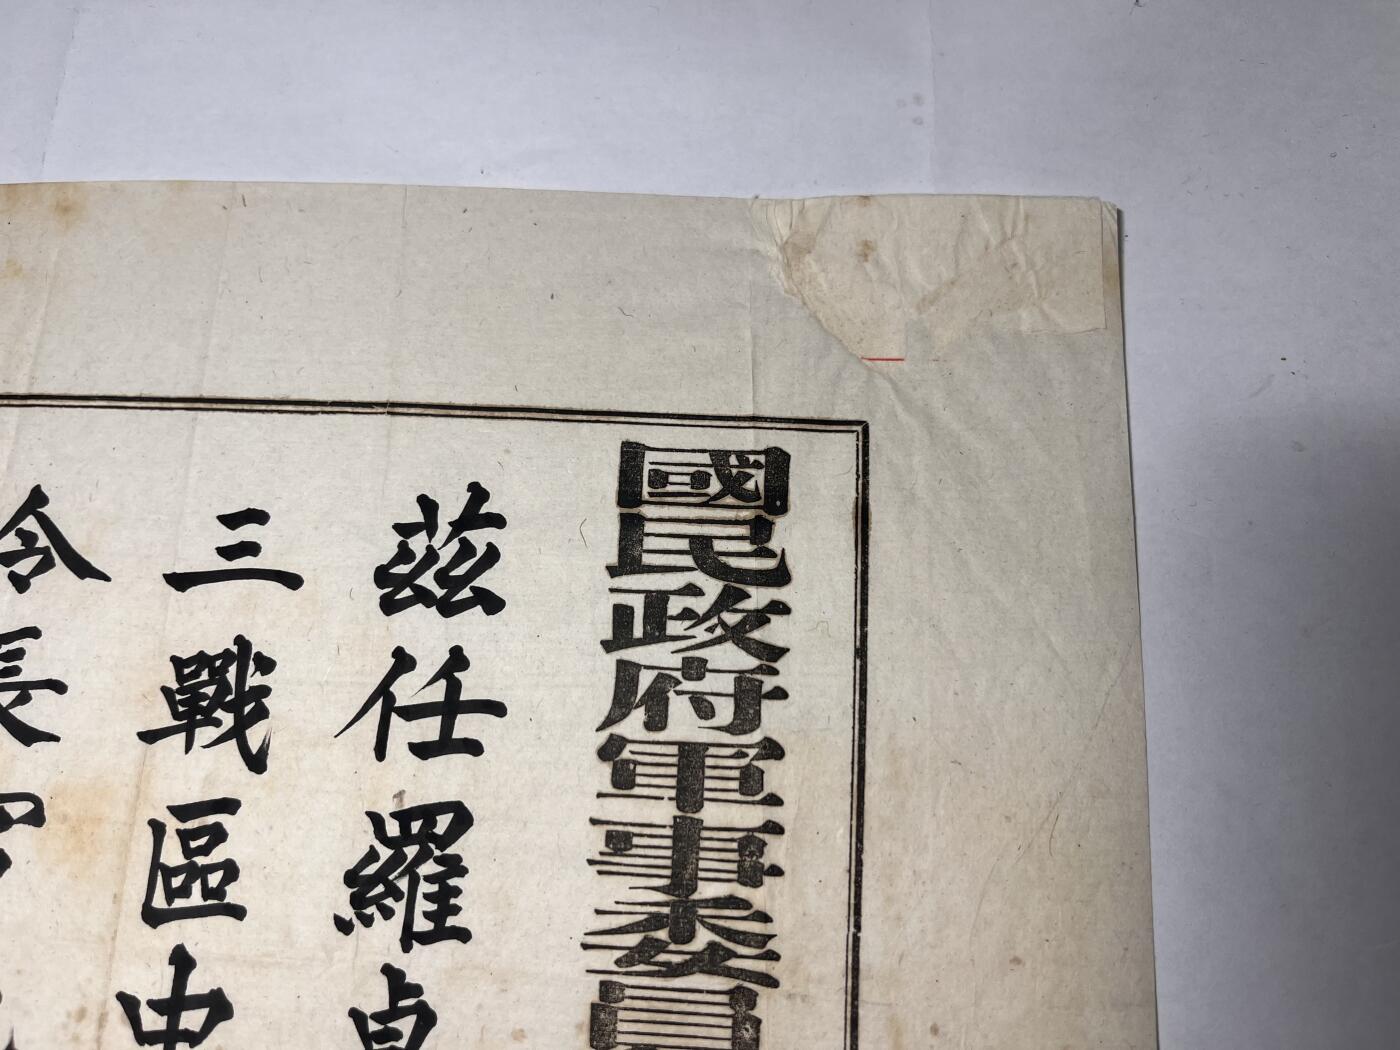 國民政府軍事委員
茲任羅卓
三戰區中
令長